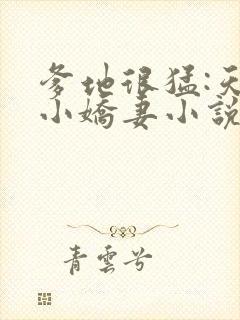 爹地很猛:天
小嬌妻小說
青雲兮